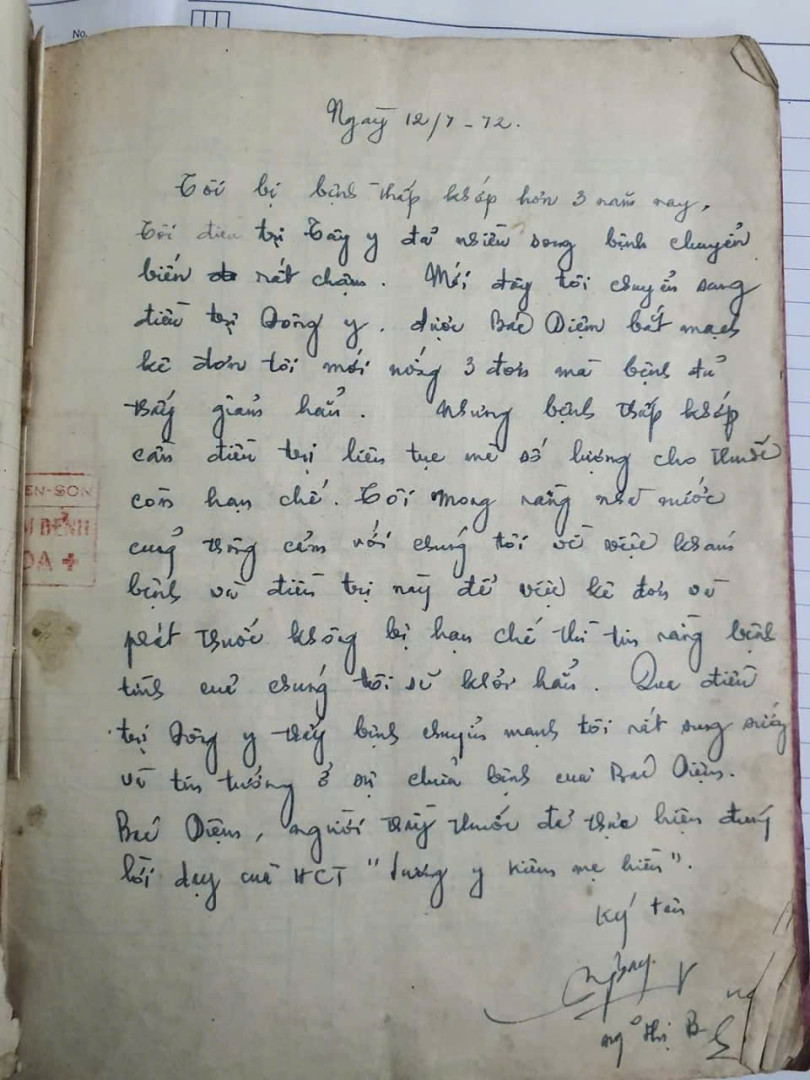 No.
Ngày 12/7-72.
Tôi bị bệnh thấp khớp hơn 3 năm nay,
Tôi điều trị Tây y đã nhiều song bệnh chuyển
biến rất chậm. Mới đây tôi chuyển sang
điều trị Đông y. được Bác Diệm bắt mạch
kê đơn tôi mới uống 3 đơn mà bệnh đã
thấy giảm hẳn. Nhưng bệnh thấp khớp
cần điều trị liên tục mà số lượng cho thuốc
còn hạn chế. Tôi mong rằng nhà nước
cũng thông cảm với chúng tôi về việc khám
bệnh và điều trị này để việc kê đơn và
phát thuốc không bị hạn chế thì tin rằng bệnh
tình của chúng tôi sẽ khỏi hẳn. Qua điều
trị Đông y thấy bệnh chuyển mạnh tôi rất sung sướng
và tin tưởng ở sự chữa bệnh của Bác Diệm.
Bác Diệm, người thầy thuốc đã thực hiện đúng
lời dạy của HCT "Lương y kiêm mẹ hiền".
Ký tên
Ngô Thị B
EN-SON
BỆNH
ĐA +